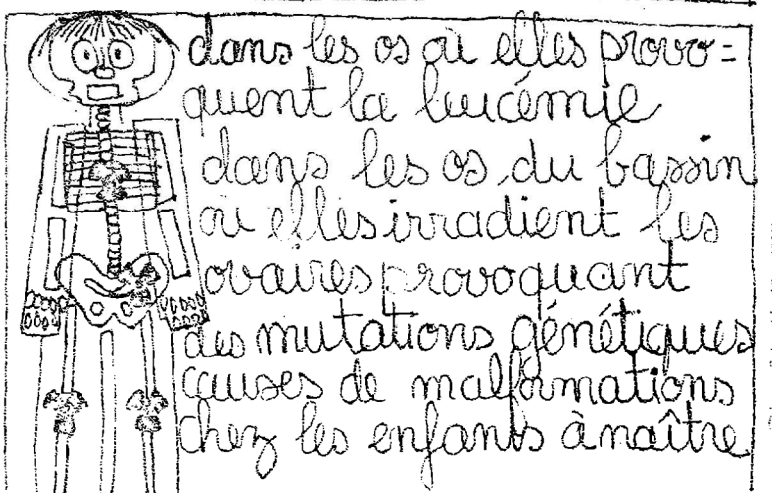 dans les os où elles provo=
quent la leucémie
dans les os du bassin
où elles irradient les
ovaires provoquant
des mutations génétiques
causes de malformations
chez les enfants à naître